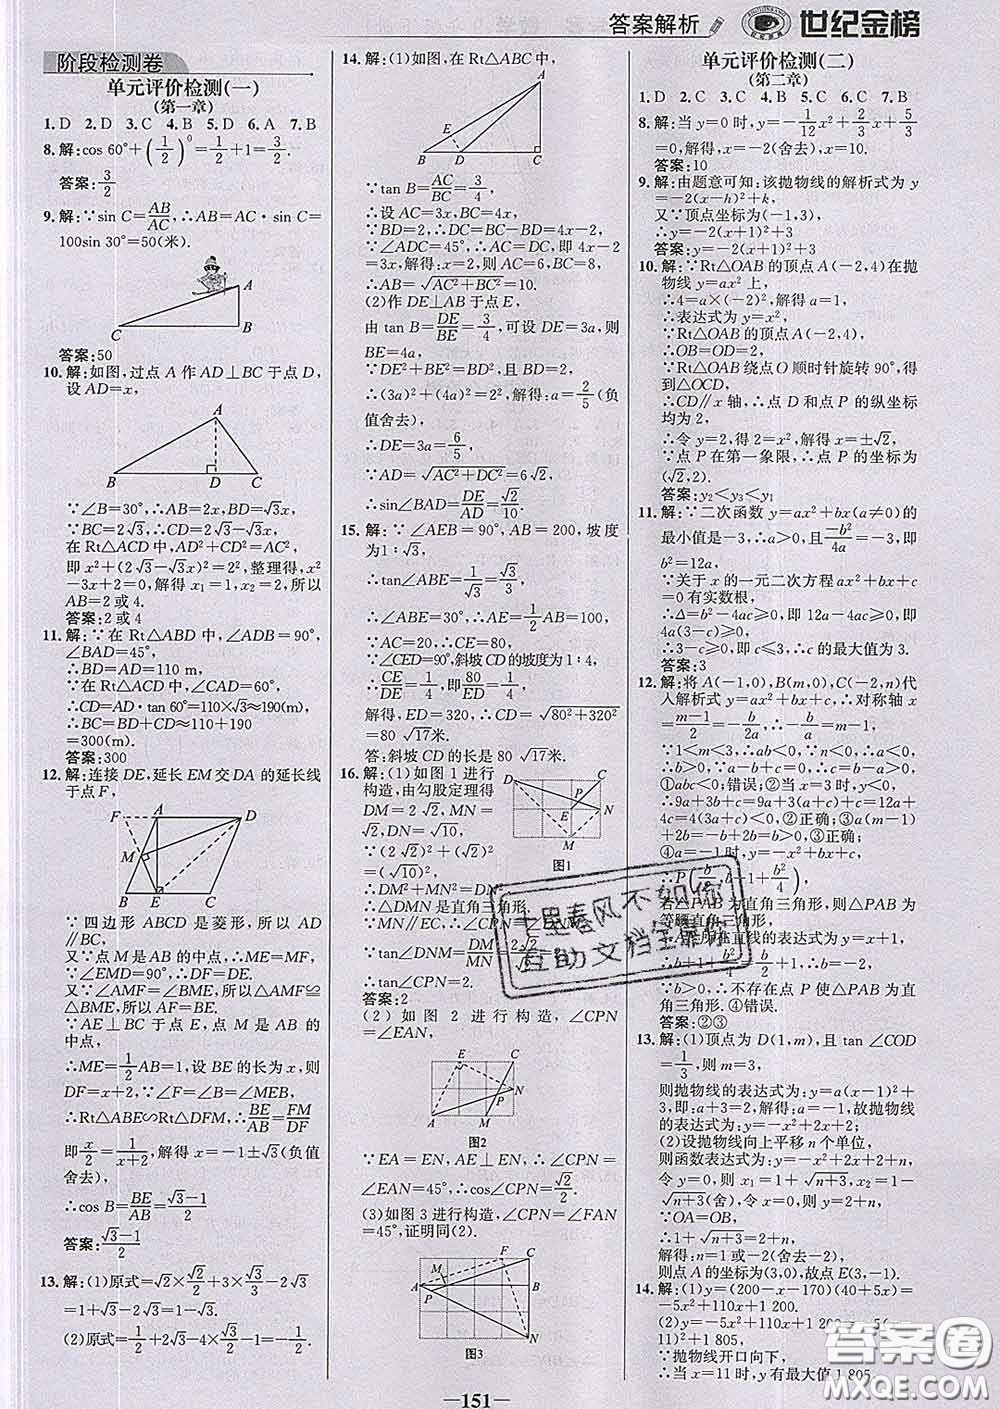 答案解析
世纪金榜
阶段检测卷
单元评价检测(一)
(第一章)
1.D 2.D 3.C 4.B 5.D 6.A 7.B
8.解:cos 60°+(1/2)^0=1/2+1=3/2.
答案:3/2
9.解:∵sin C=AB/AC,∴AB=AC·sin C=
100sin 30°=50(米).
A
C B
答案:50
10.解:如图,过点 A 作 AD⊥BC 于点 D,
设 AD=x,
A
B D C
∵∠B=30°,∴AB=2x,BD=√3x,
∵BC=2√3,∴CD=2√3-√3x,
在 Rt△ACD 中,AD²+CD²=AC²,
即 x²+(2√3-√3x)²=2²,整理得,x²
-3x+2=0,解得 x₁=1,x₂=2,所以
AB=2 或 4.
答案:2 或 4
11.解:∵在 Rt△ABD 中,∠ADB=90°,
∠BAD=45°,
∴BD=AD=110 m,
∵在 Rt△ACD 中,∠CAD=60°,
∴CD=AD·tan 60°=110×√3≈190(m).
∴BC=BD+CD≈110+190
=300(m).
答案:300
12.解:连接 DE,延长 EM 交 DA 的延长线
于点 F,
F A D
M
B E C
∵四边形 ABCD 是菱形,所以 AD
∥BC,
又∵点 M 是 AB 的中点,∴ME=MF,
又∵∠AMF=∠BME,∴△AMF≌
△BME,所以 AF=BE.
∵AE⊥BC 于点 E,点 M 是 AB 的
中点,
∴ME=1/2AB=1,设 BE 的长为 x,则
DF=x+2,又∵∠F=∠B=∠MEB,
∴Rt△ABE∽Rt△DFM,∴BE/AB=FM/DF
即 x/2=1/(x+2),解得 x=-1±√3(负值
舍去),
∴cos B=BE/AB=(√3-1)/2
答案:(√3-1)/2
13.解:(1)原式=√2×√2/2+3×√3/3-2√3
=1+√3-2√3=1-√3.
(2)原式=1/2+2√3-4×√3/2-1=-1/2.
14.解:(1)如图,在 Rt△ABC 中,
A
E
B D C
∵tan B=AC/BC=3/4,
∴设 AC=3x,BC=4x,
∵BD=2,∴DC=BC-BD=4x-2,
∵∠ADC=45°,∴AC=DC,即 4x-2
=3x,解得:x=2,则 AC=6,BC=8,
∴AB=√(AC²+BC²)=10.
(2)作 DE⊥AB 于点 E,
由 tan B=DE/BE=3/4,可设 DE=3a,则
BE=4a,
∵DE²+BE²=BD²,且 BD=2,
∴(3a)²+(4a)²=2²,解得:a=2/5(负
值舍去),
∴DE=3a=6/5,
∵AD=√(AC²+DC²)=6√2,
∴sin∠BAD=DE/AD=√2/10.
15.解:∵∠AEB=90°,AB=200,坡度
为1∶√3,
∴tan∠ABE=1/√3=√3/3,
∴∠ABE=30°,∴AE=1/2AB=100.
∵AC=20,∴CE=80.
∵∠CED=90°,斜坡 CD 的坡度为 1∶4,
∴CE/DE=1/4,即80/ED=1/4,
解得,ED=320,∴CD=√(80²+320²)
=80√17米.
答:斜坡 CD 的长是 80√17米.
16.解:(1)如图 1 进行
构造,由勾股定理得
DM=2√2,MN=
√2,DN=√10,
∵(2√2)²+(√2)²
=(√10)²,
∴DM²+MN²=DN²,
∴△DMN 是直角三角形.
∵MN∥EC,∴∠CPN=∠DNM,
∵tan∠DNM=DM/MN=2√2/√2=2,
∴tan∠CPN=2.
答案:2
D C P E N M
图1
(2)如图 2 进行构造,∠CPN
=∠EAN,
E C P N A M
图2
∵EA=EN,AE⊥EN,∴∠CPN=
∠EAN=45°,∴cos∠CPN=√2/2.
(3)如图 3 进行构造,∠CPN=∠FAN
=45°,证明同(2).
F C M A P B N
图3
单元评价检测(二)
(第二章)
1.D 2.C 3.C 4.B 5.C 6.C 7.B
8.解:当 y=0 时,y=-1/12x²+2/3x+5/3
=0,解得,x=-2(舍去),x=10.
答案:10
9.解:由题意可知:该抛物线的解析式为 y
=-2(x-h)²+k,
又∵顶点坐标为(-1,3),
∴y=-2(x+1)²+3
答案:y=-2(x+1)²+3
10.解:∵Rt△OAB 的顶点 A(-2,4)在抛
物线 y=ax² 上,
∴4=a×(-2)²,解得 a=1,
∴表达式为 y=x²,
∵Rt△OAB 的顶点 A(-2,4),
∴OB=OD=2,
∵Rt△OAB 绕点 O 顺时针旋转 90°,得
到△OCD,
∴CD∥x 轴,∴点 D 和点 P 的纵坐标
均为 2,
∴令 y=2,得 2=x²,解得 x=±√2,
∵点 P 在第一象限,∴点 P 的坐标为
(√2,2).
答案:y₂<y₃<y₁
11.解:∵二次函数 y=ax²+bx(a≠0)的
最小值是-3,∴a>0,且-b²/4a=-3,即
b²=12a,
∵关于 x 的一元二次方程 ax²+bx+c
=0 有实数根,
∴Δ=b²-4ac≥0,即 12a-4ac≥0,即
4a(3-c)≥0,
∴3-c≥0,即 c≤3,∴c 的最大值为 3.
答案:3
12.解:将 A(-1,0),B(m,0),C(-2,n)代
入解析式 y=ax²+bx+c,∴对称轴 x
=(m-1)/2=-b/2a,∴-b/a=m-1,
∵1<m<3,∴ab<0,∵n<0,∴a<0,
∴b>0,∵a-b+c=0,∴c=b-a>0.
①abc<0;错误;②当 x=3 时,y<0,
∴9a+3b+c=9a+3b+(b-a)=8a+
4b=4(2a+b)<0,②正确;
∴P(b/2,b+1+b²/4)
∴b<-2,∴不存在点 P 使△PAB 为直
角三角形. ④错误.
答案:②③
13.解:(1)顶点为 D(1,m),且 tan ∠COD
=1/3,则 m=3,
则抛物线的表达式为:y=a(x-1)²+
3,即:a+3=2,解得:a=-1,故抛物线
的表达式为:y=-x²+2x+2;
(2)设抛物线向上平移 n 个单位,
则函数表达式为:y=-x²+2x+2+n,
令 y=0,则 x₁=1+√(n+3),x₂=1-
√(n+3)(舍),令 x=0,则 y=2+n,
∵OA=OB,
∴1+√(n+3)=2+n,
解得:n=1 或-2(舍去-2),
则点 A 的坐标为(3,0),故点 E(3,-1).
14.解:(1)y=(200-x-170)(40+5x)=
-5x²+110x+1 200.
(2)y=-5x²+110x+1 200=-5(x-
11)²+1 805,
∵抛物线开口向下,
∴当 x=11 时,y 有最大值 1 805.
十里春风不如你
互助文档全靠你
答案圈
MXQE.COM
—151—